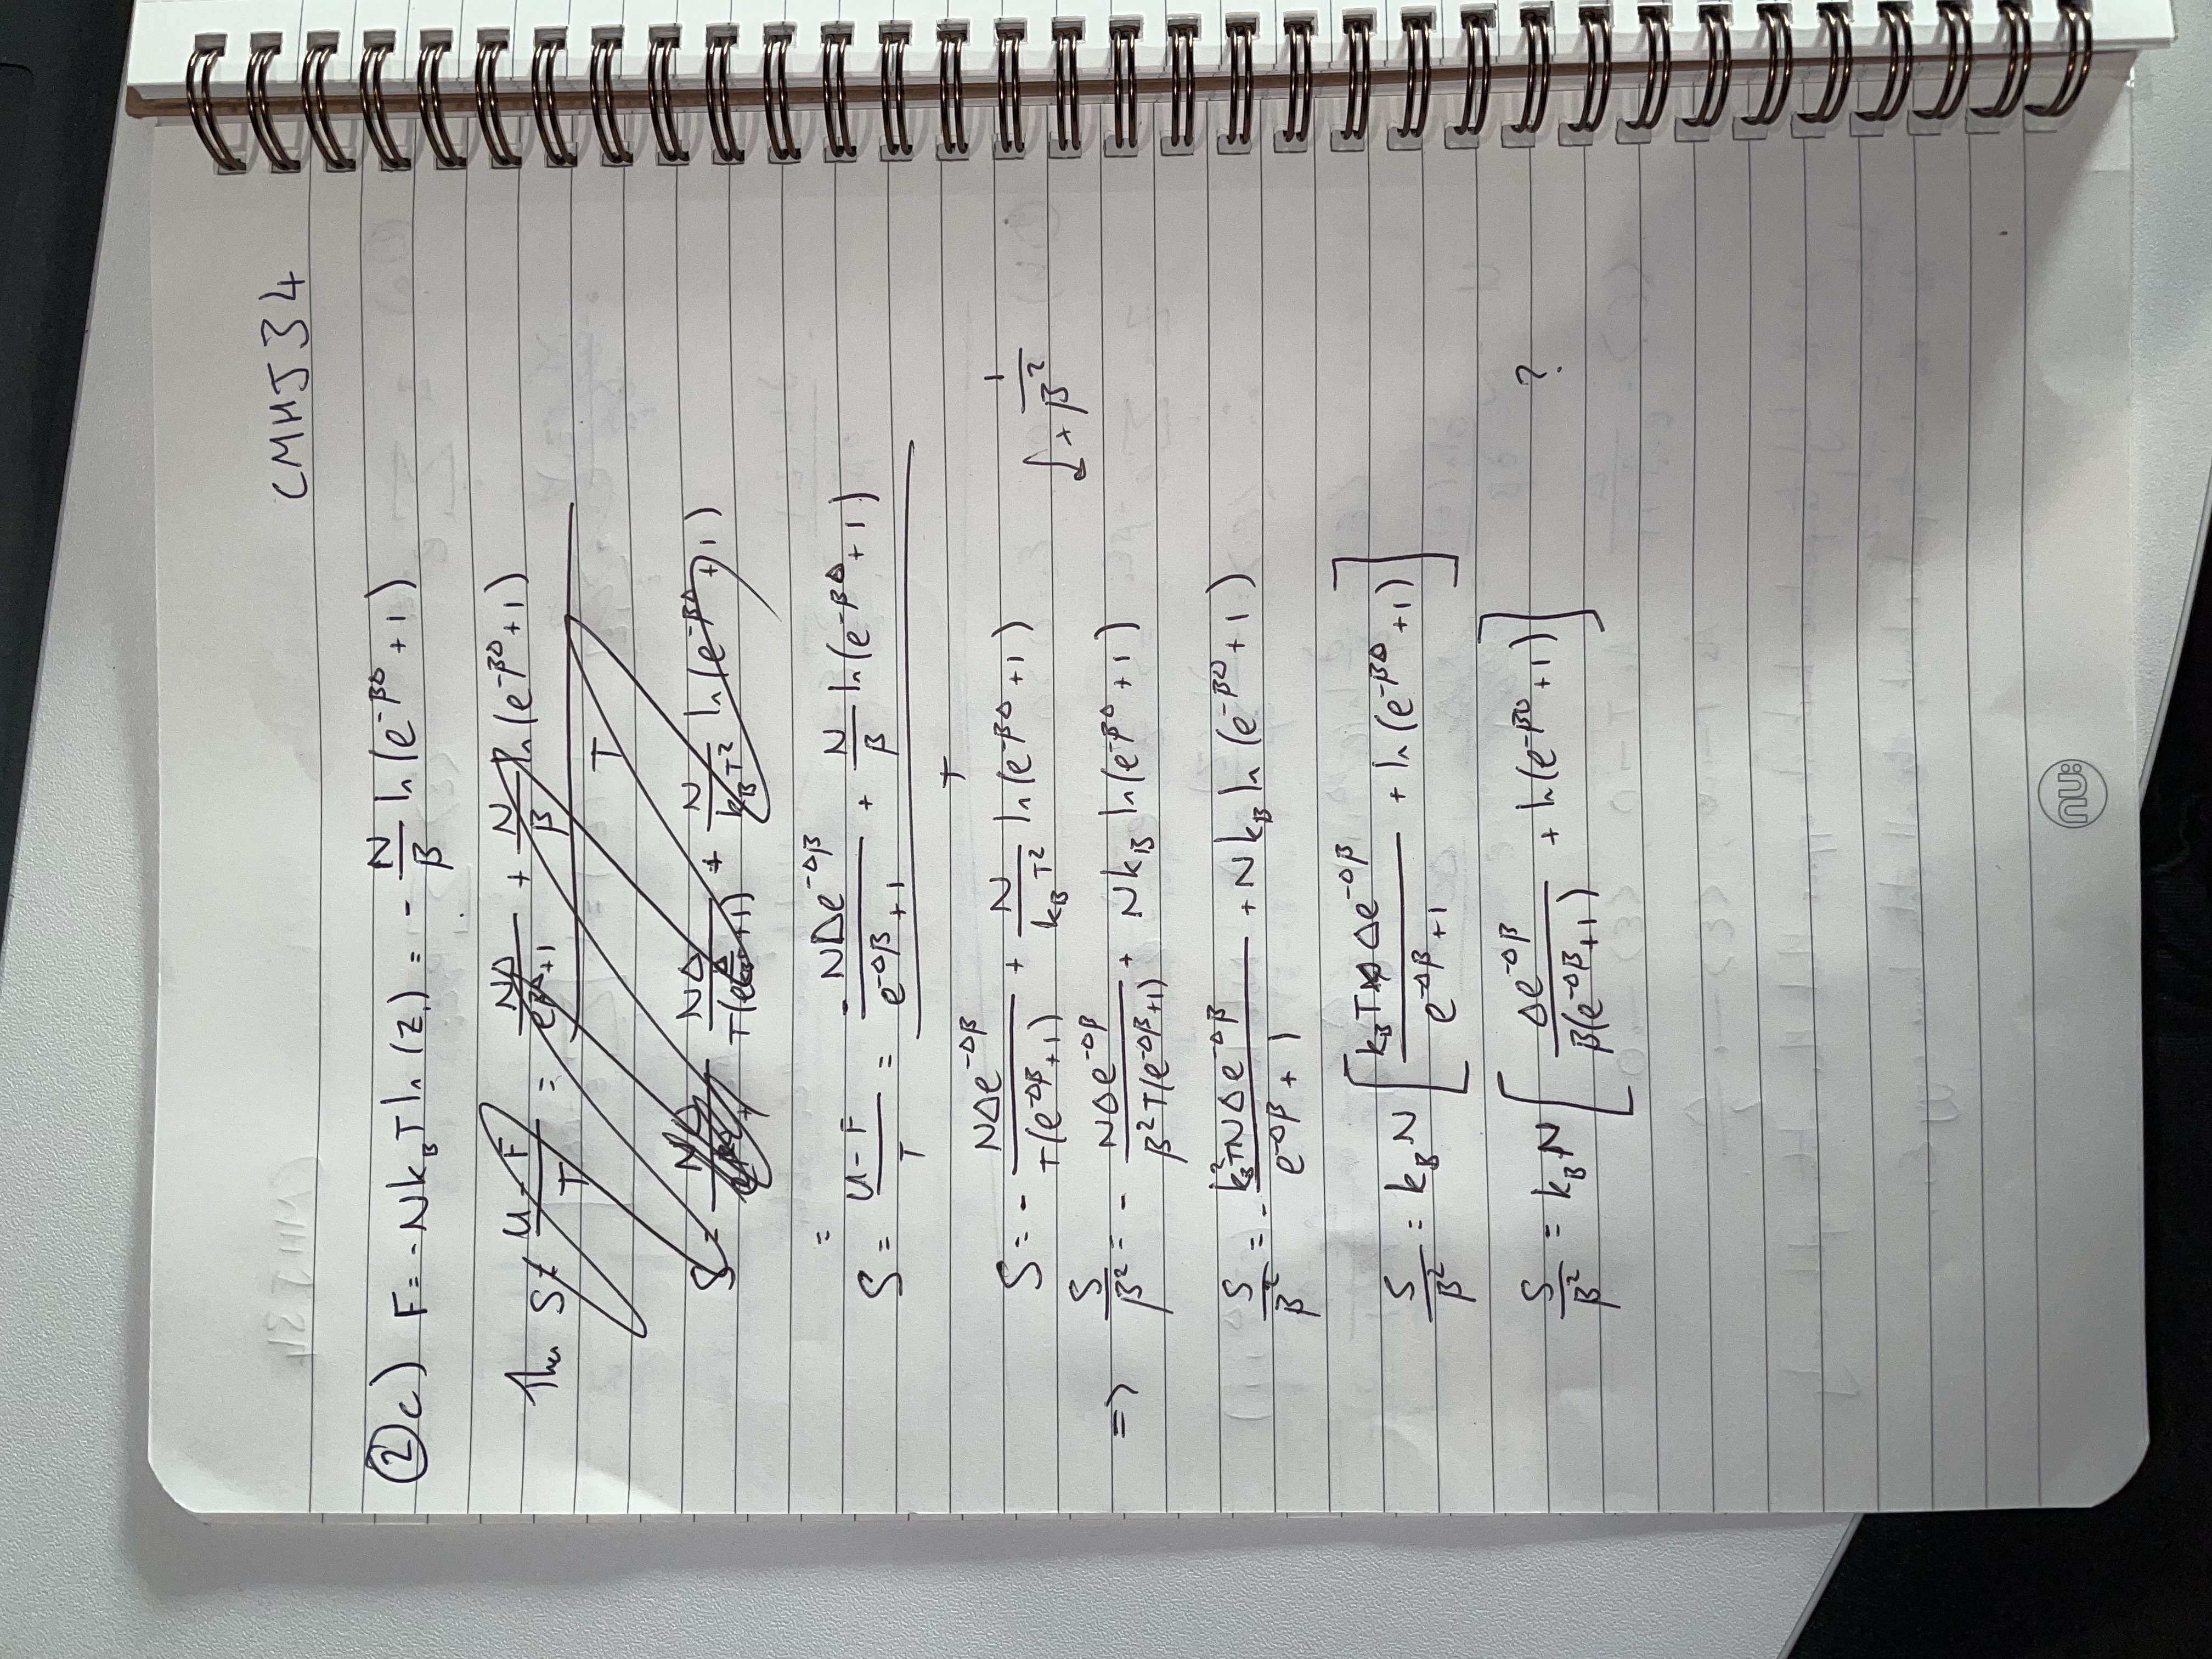 CMHJ34
② c) F = -Nk_B T ln(Z_1) = - N/β ln(e^{-βΔ} + 1)
Then S = (U - F)/T = (NΔ/(e^{βΔ}+1) + N/β ln(e^{-βΔ} + 1))/T
S = NΔ/(T(e^{}+1)) + N/(k_B T^2) ln(e^{-βΔ} + 1)
=
S = (U - F)/T = (-NΔe^{-Δβ}/(e^{-Δβ} + 1) + N/β ln(e^{-βΔ} + 1))/T
S = - NΔe^{-Δβ}/(T(e^{-Δβ}+1)) + N/(k_B T^2) ln(e^{-βΔ} + 1) ↓ × 1/β^2
=> S/β^2 = - NΔe^{-Δβ}/(β^2 T(e^{-Δβ}+1)) + Nk_B ln(e^{-βΔ} + 1)
S/β^2 = - k_B^2 TNΔe^{-Δβ}/(e^{-Δβ} + 1) + Nk_B ln(e^{-βΔ} + 1)
S/β^2 = k_B N [k_B T Δe^{-Δβ}/(e^{-Δβ} + 1) + ln(e^{-βΔ} + 1)]
S/β^2 = k_B N [Δe^{-Δβ}/(β(e^{-Δβ}+1)) + ln(e^{-βΔ} + 1)] ?
nu: